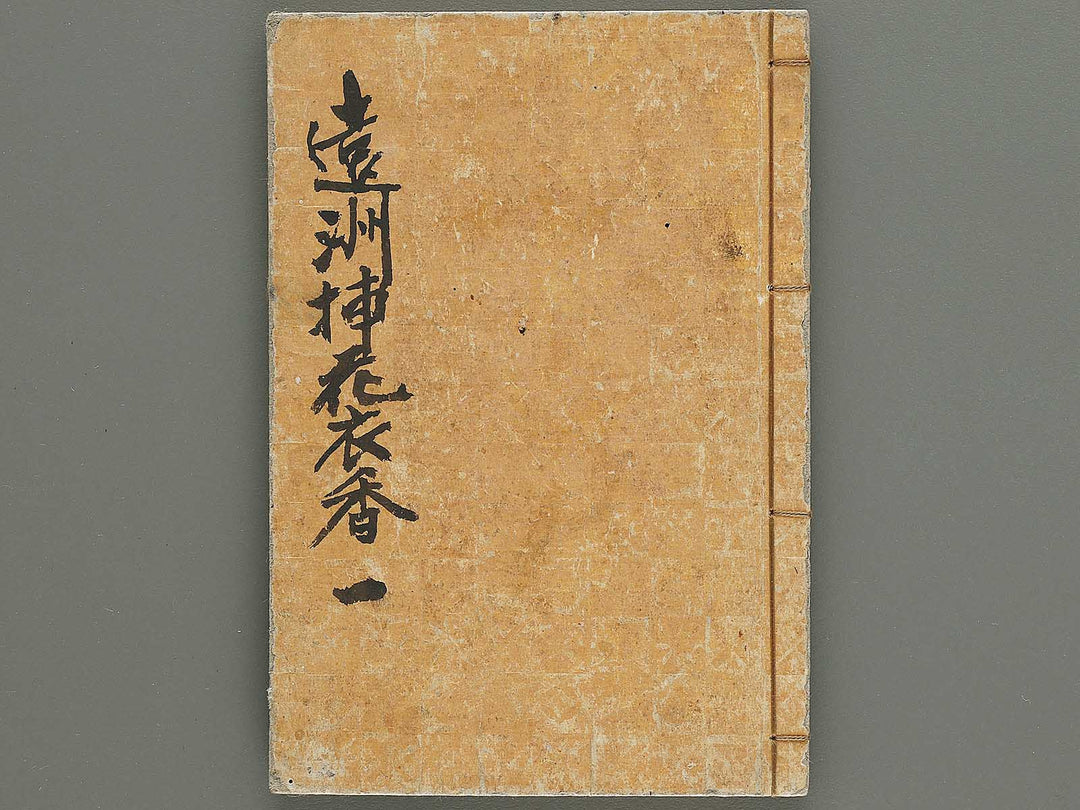 遠洲挿花衣香 一